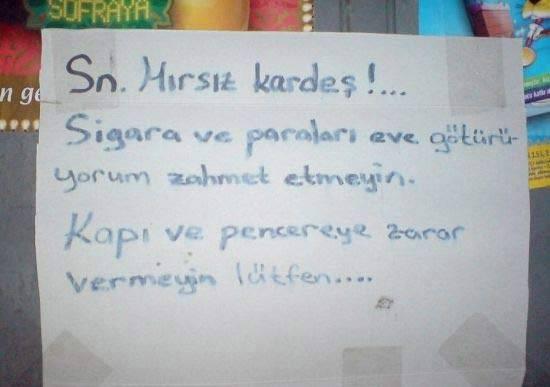 SOFRAYA
Sn. Hırsız kardeş!...
Sigara ve paraları eve götürü-
yorum zahmet etmeyin.
Kapı ve pencereye zarar
vermeyin lütfen....